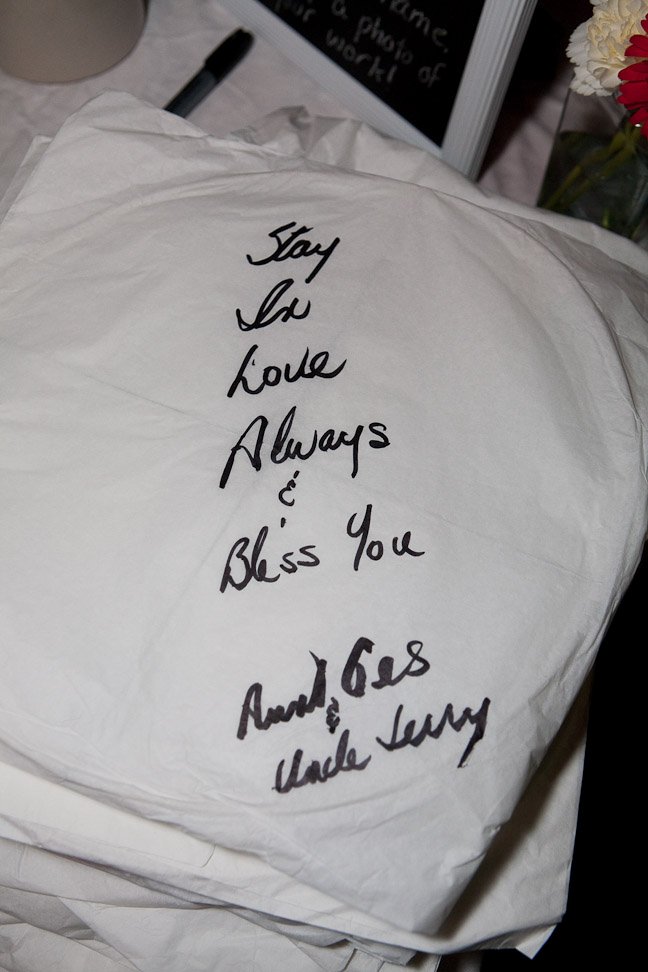 name,
a photo of
your work!
Stay
In
Love
Always
&
Bless You
Aunt Ges
&
Uncle Jerry